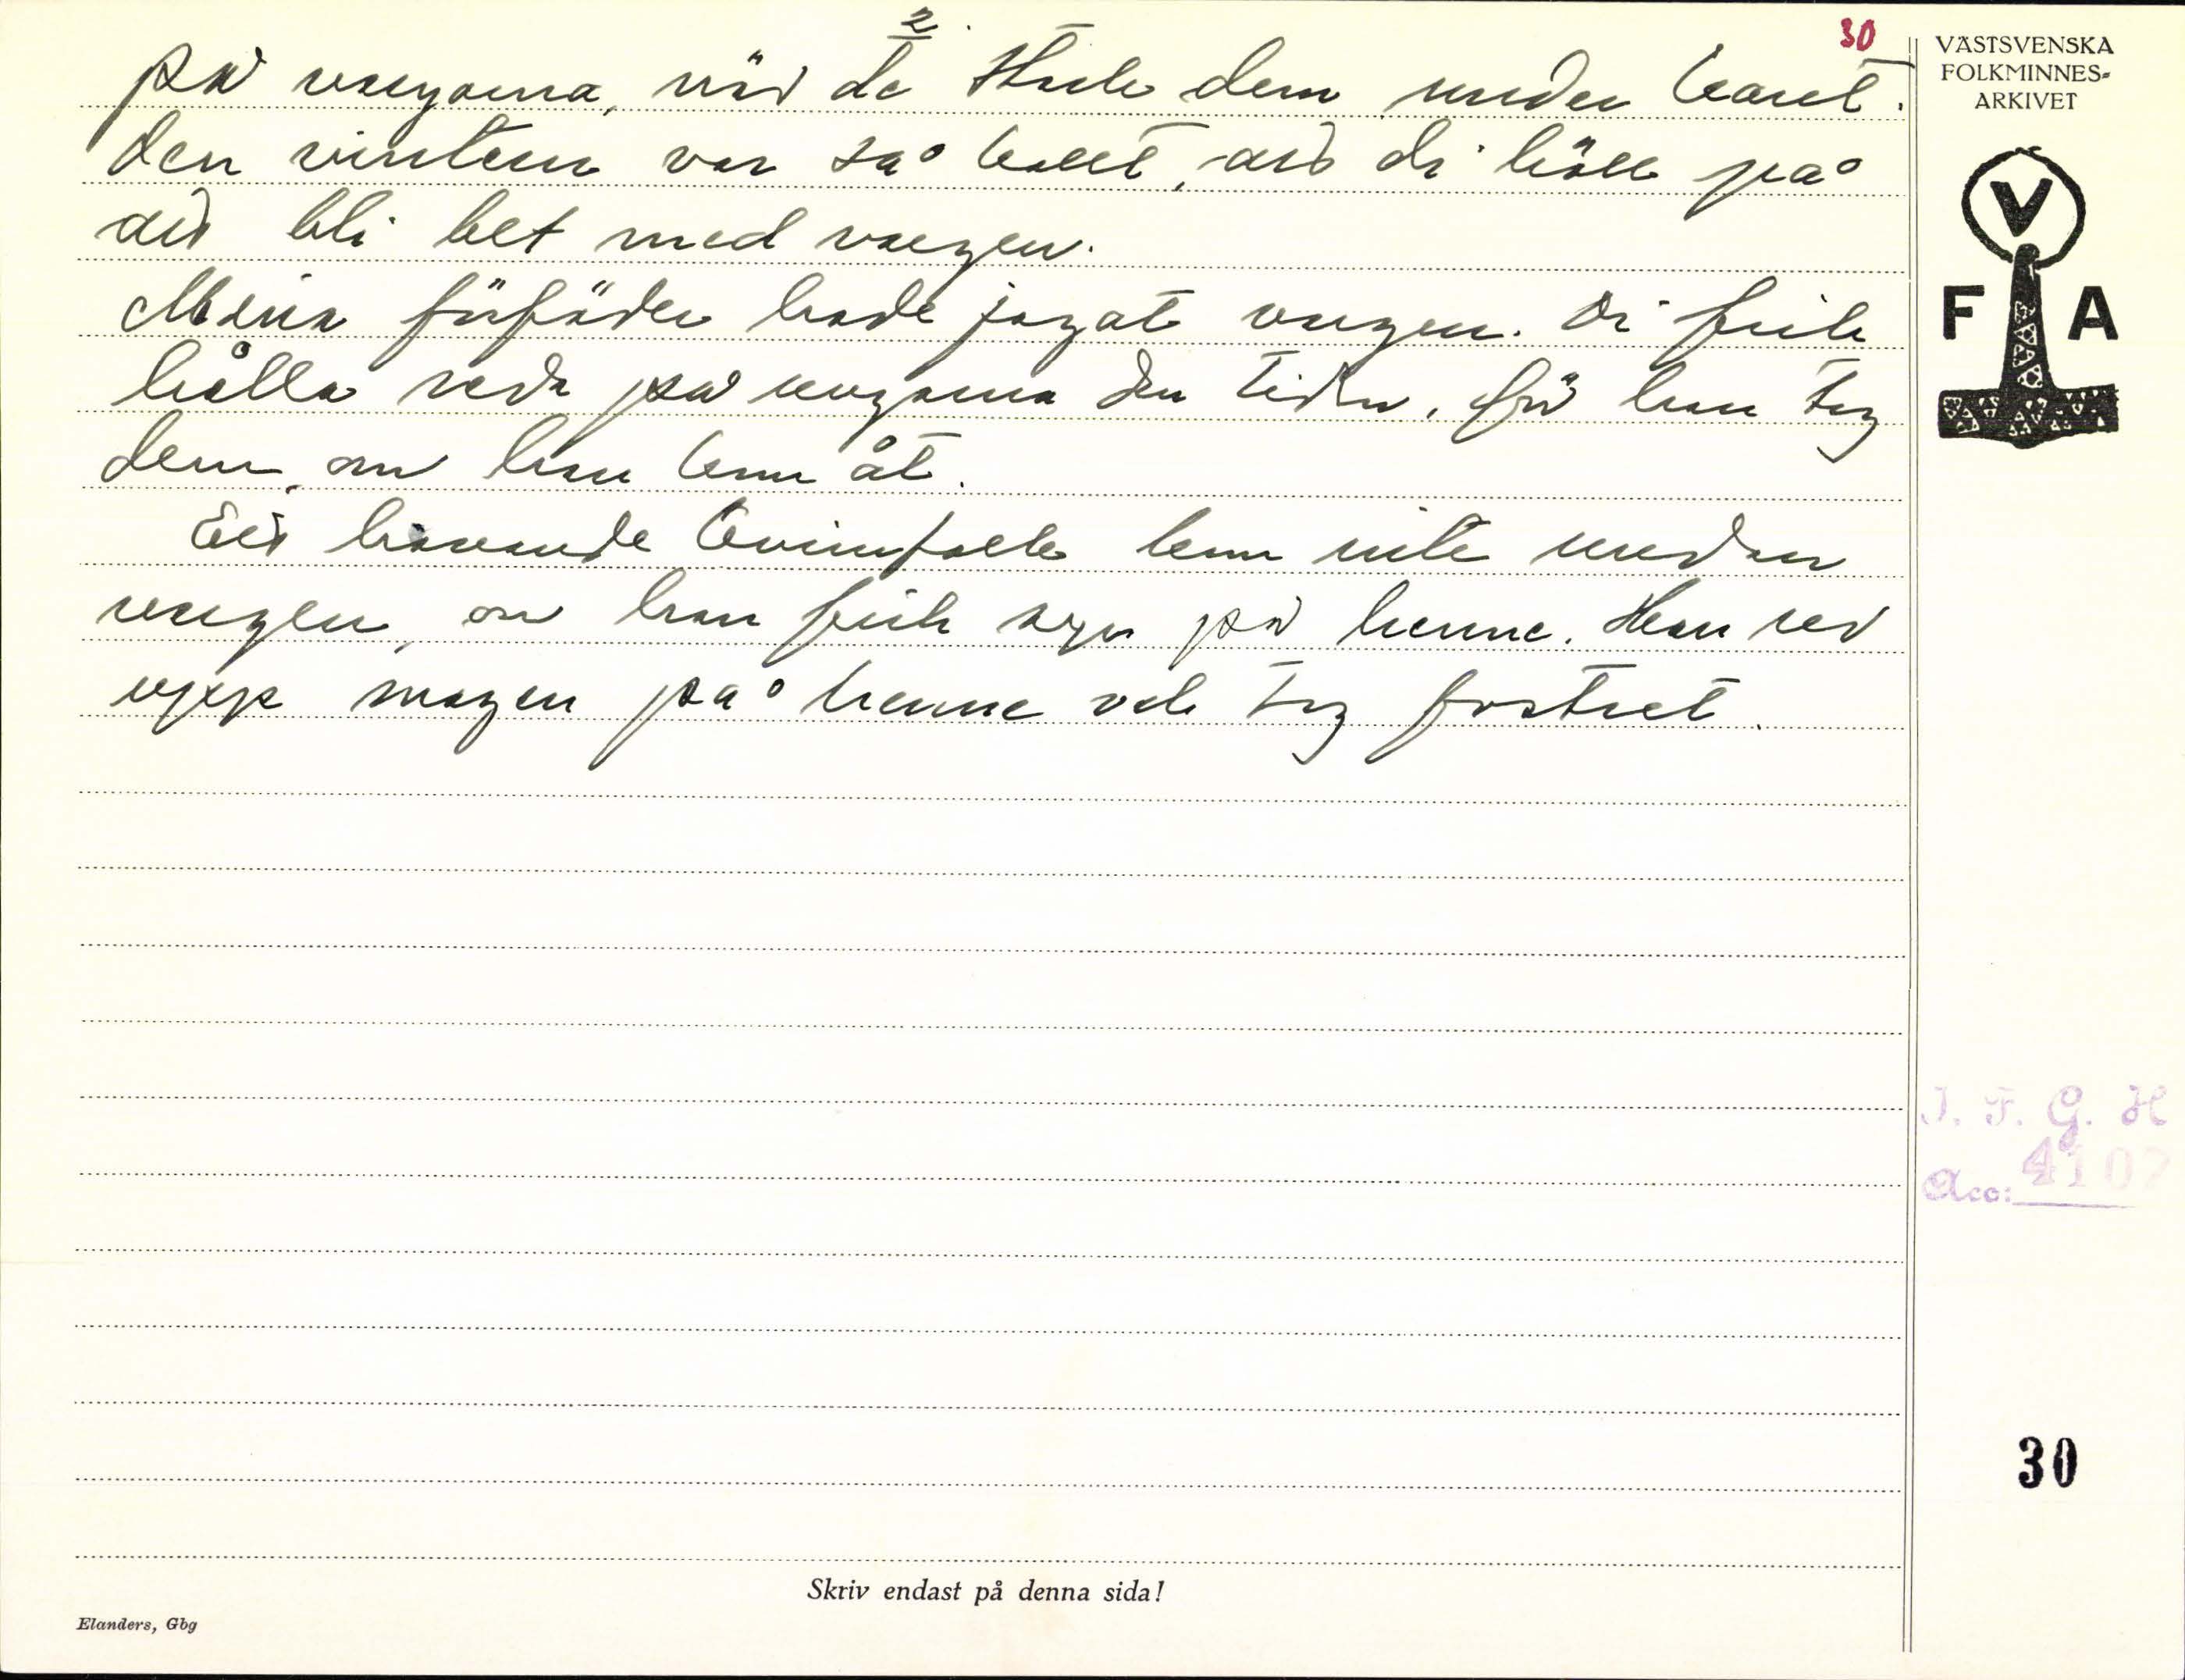 2.
30
på vargarna, när de sköto dem under karet.
Den vintern var så kallt, att di höll på
att bli bet med vargen.
Mina förfäder hade jagat vargen. Di fick
hålla reda på ungarna den tiden, för han tog
dem, om han kom åt.
Ett havande kvinnfolk kom inte undan
vargen, om han fick syn på henne. Han rev
upp magen på henne och tog fostret.
VÄSTSVENSKA
FOLKMINNES=
ARKIVET
V
F A
I. F. G. H
Acc: 4102
30
Skriv endast på denna sida!
Elanders, Gbg